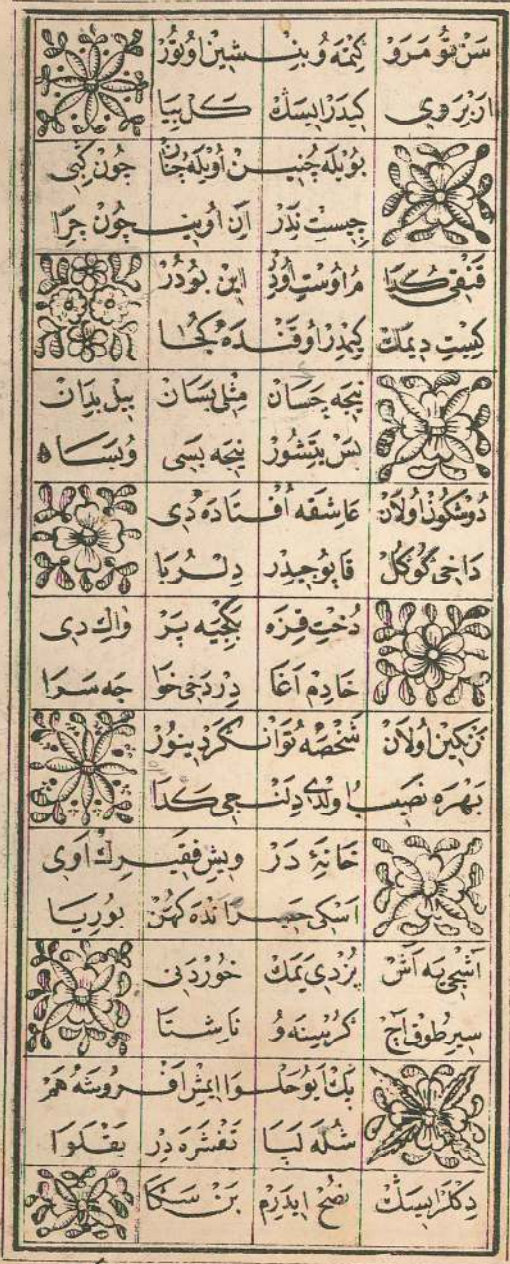 سَنْ تُو مَرَوْ كِتْمَه وُ بِنْشِينْ اوُتُوْر
اَرْبَرَوِي كِيدَرْ اِيسَكْ كَلْ بِيَا
بُويْلَه چُنِينْ اُويْلَه چُنَانْ چُونْ كِبِي
چِيسْت نَدَرْ اِنْ اُوينْ چُونْ چِرَا
قَنْقِي كُدَا مُرْ اوُسْت اُودُرْ اِينْ بُودُرْ
كِيسْت دِيمَكْ كِيمْدِرْ اُو قَنْدَه كُجَا
نِيجَه چِسَانْ مِثْلِي بَسَانْ بِيلْ بِدَانْ
بَسْ يَتِشُورْ نِيجَه بَسِي وُبَسَا
دُوشْكُونْ اُولَانْ عَاشِقَه اُفْتَادَه دِي
دَاخِي كُوكُلْ قَاپُوجِيدِرْ دِلْرُبَا
دُخْت قِزَه بَكْجِيَه پَرْوَاكْ دِي
خَادِمْ آغَا دِرْ دَخِي خَواجَه سَرَا
زَنْكِينْ اُولَانْ شَخْصَه تُوَانْكَرْ دِينُورْ
بَهْرَه نَصِيبْ اُولْدِي دِلَنْجِي كَدَا
خَانَۀ دَرْوِيشْ فَقِيرِكْ اَوِي
اَسْكِي حَصِيرْ اَنْدَه كُهَنْ بُورِيَا
آشْجِي يَه آشْپَزْ دِي يَمَكْ خُورْدَنِي
سِيرْ طُوقْ آجْ كُرْسِنَه وُ نَاشِتَا
بَكْ اَيُو حَلْوَا اِيمِشْ اَفْرُوشَه هَمْ
شُلَه لَپَا تَفْشَرَه دِرْ بَقْلَوَا
دِكْلَرْ اِيسَكْ نُصْحْ اِيدَرِمْ بَنْ سَكَا